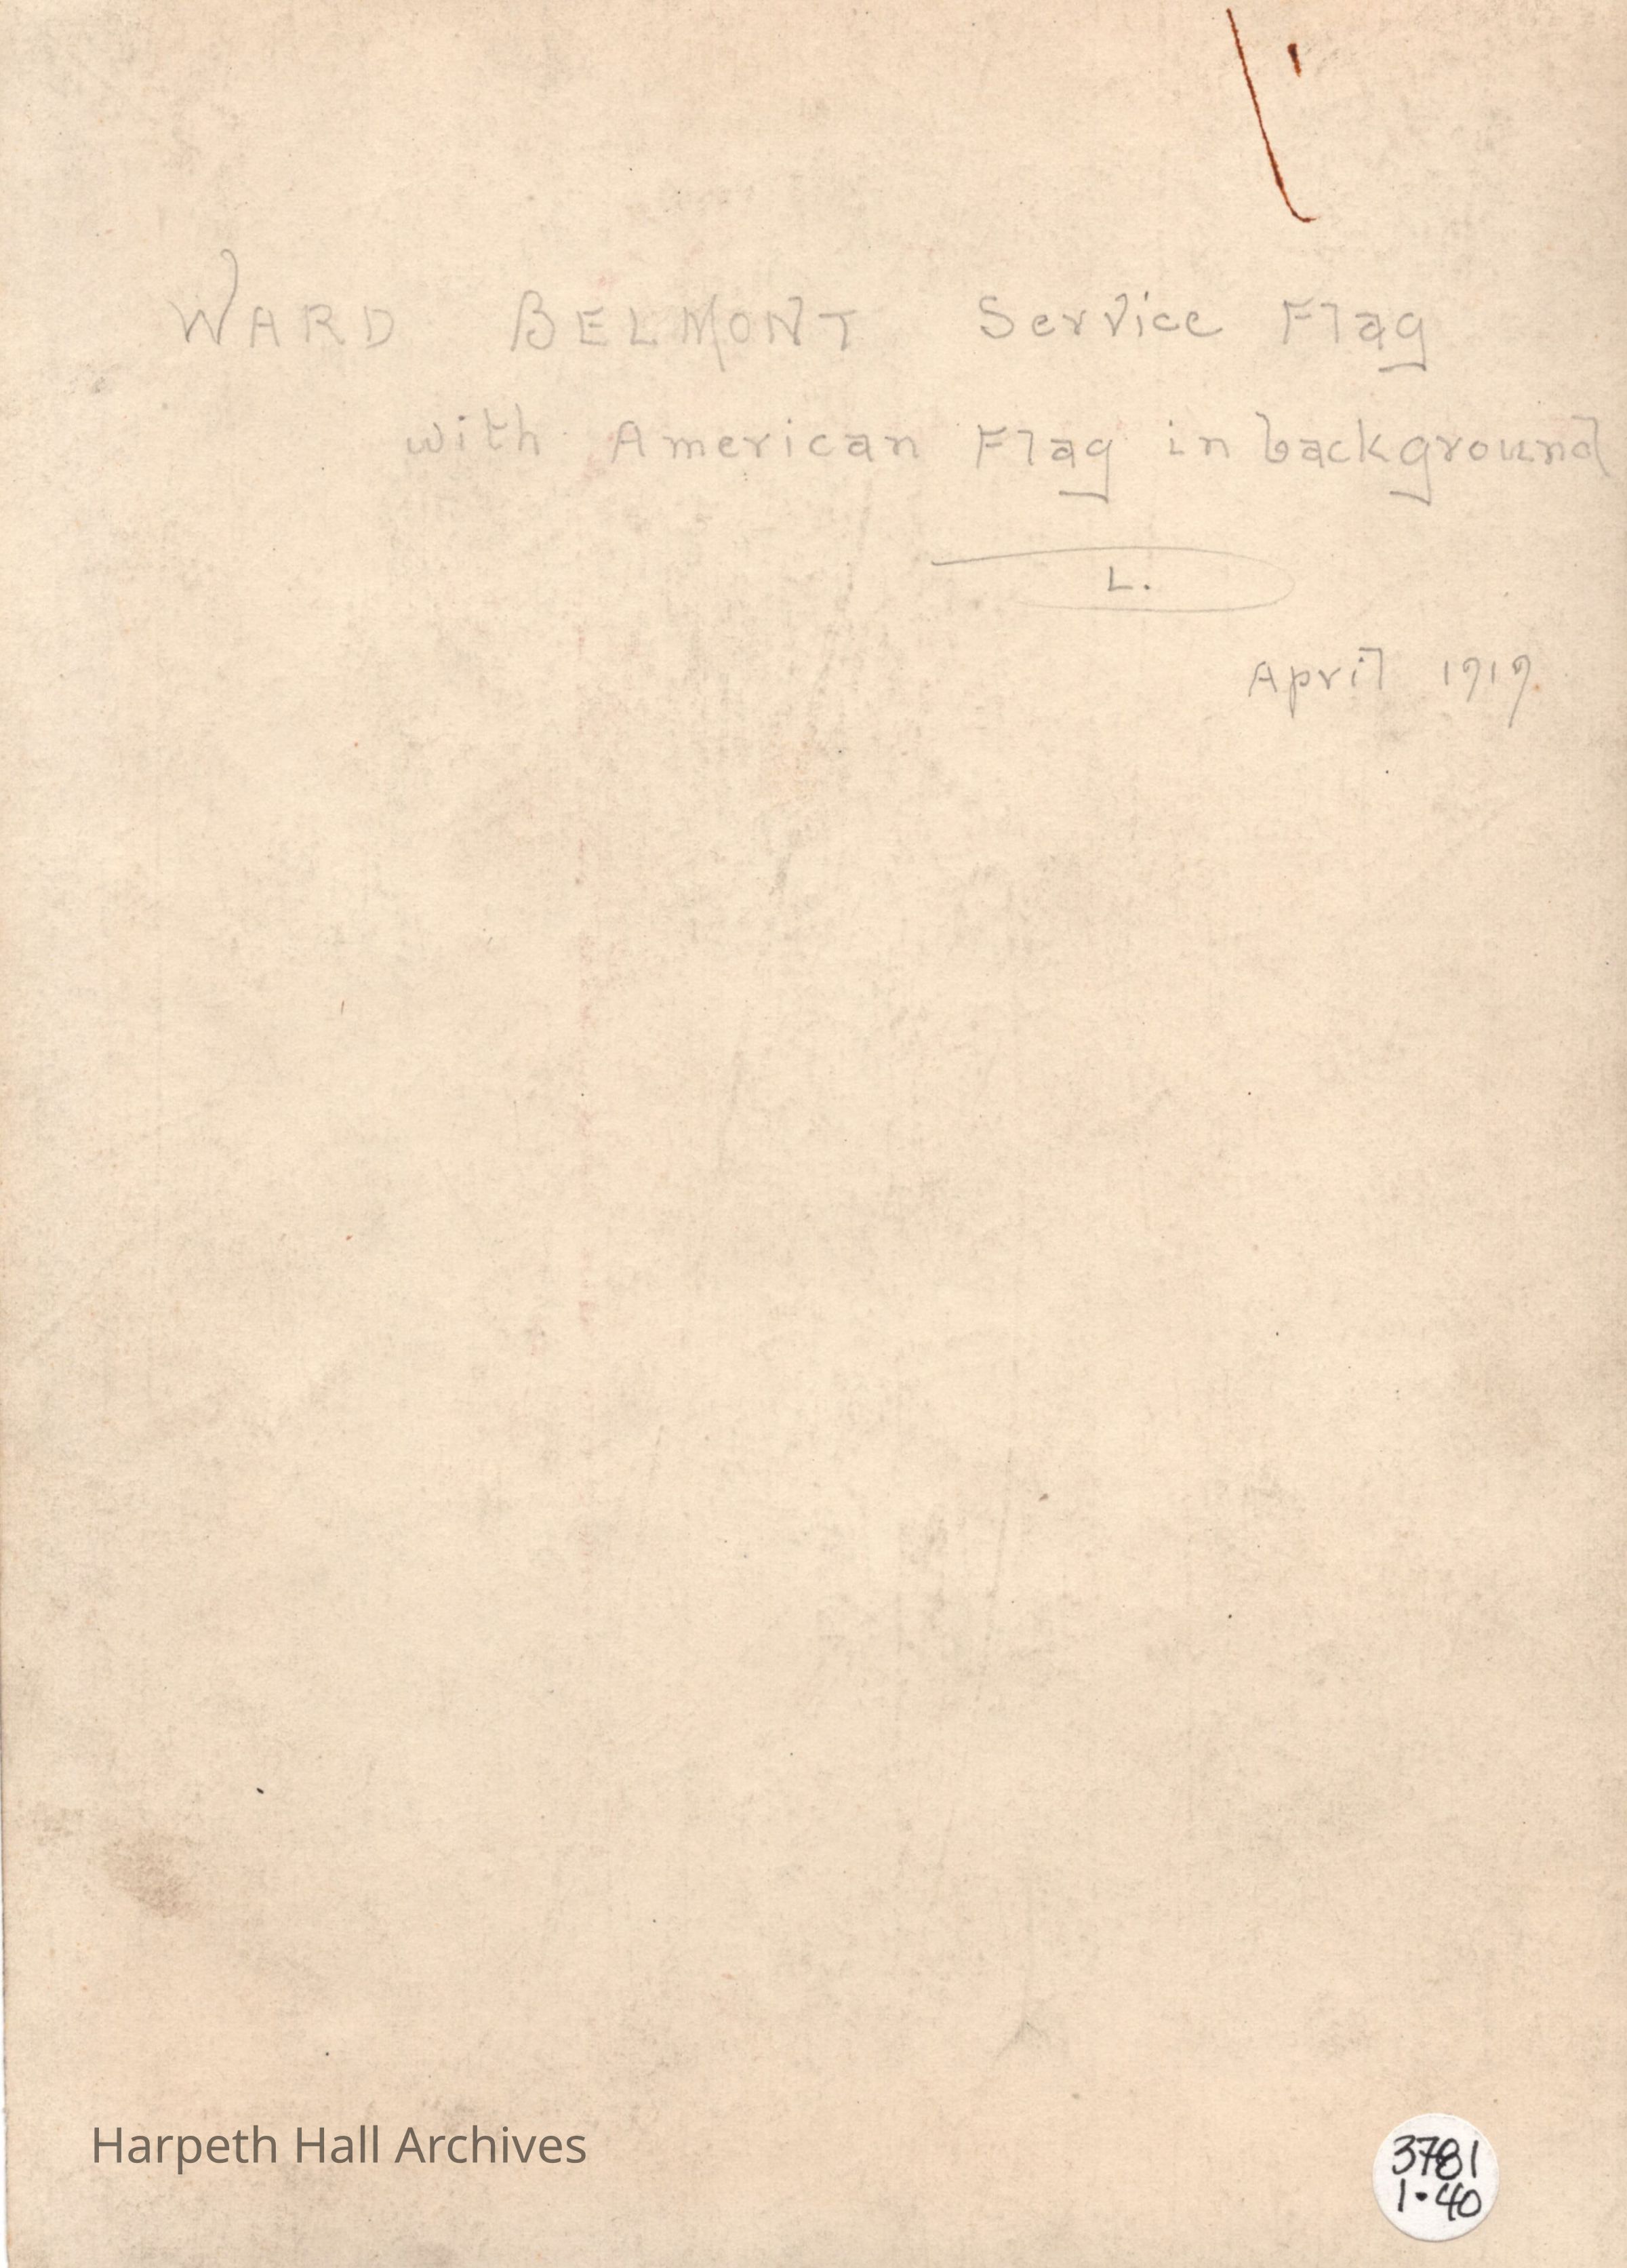 WARD BELMONT Service Flag
with American Flag in background
L.
April 1919
Harpeth Hall Archives
3781
1.40